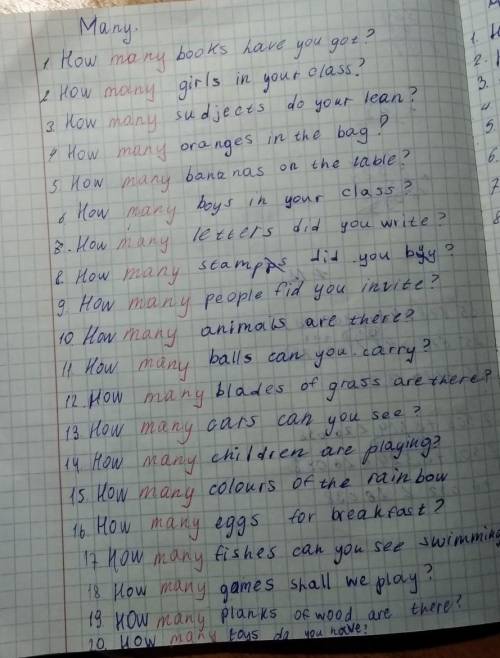 Many.
1 How many books have you got?
2 How many girls in your class?
3. How many sudjects do your lean?
4 How many oranges in the bag?
5. How many bananas on the table?
6 How many boys in your class?
7. How many letters did you write?
8. How many stamps did you buy?
9. How many people fid you invite?
10 How many animals are there?
11 How many balls can you carry?
12. How many blades of grass are there?
13. How many cars can you see?
14. How many children are playing?
15. How many colours of the rainbow
16. How many eggs for breakfast?
17 How many fishes can you see swimming
18 How many games shall we play?
19. How many planks of wood are there?
20. How many toys do you have?
1.
2.
3.
4
5
6.
7
8